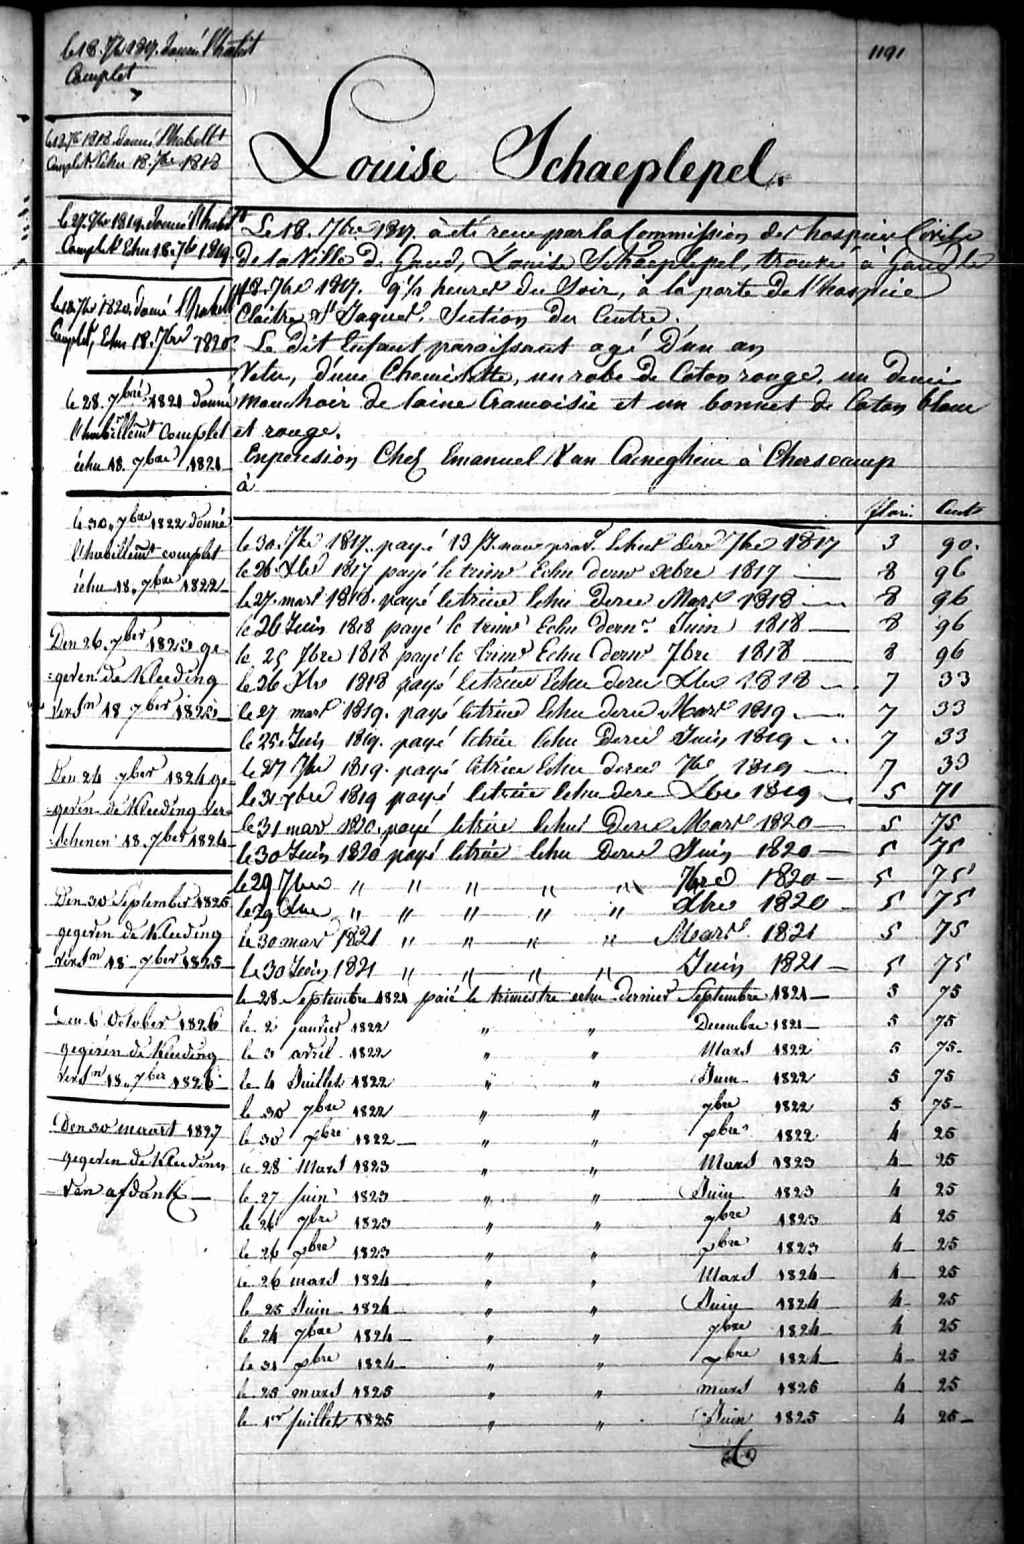 1191
le 18. 7bre 1817. donné l'habit
Complet
le 18. 7bre 1818 donné l'habellt
Complet Echu 18. 7bre 1818
le 27. 7bre 1819. donné l'habt
Complet Echu 18. 7bre 1819.
le 18. 7bre 1820. donné l'habellt
Complet, Echu 18. 7bre 1820
le 28. 7bre 1821 donné
l'habillemt complet
échu 18. 7bre 1821
le 30. 7bre 1822 donné
l'habillemt complet
échu 18. 7bre 1822
Den 26. 7ber 1823 ge-
geven de Kleeding
versn 18 7ber 1823
Den 24 7ber 1824 ge-
geven de Kleeding ver-
schenen 18. 7ber 1824
Den 30 September 1825
gegeven de Kleeding
versn 18 7ber 1825
Den 6 October 1826
gegeven de Kleeding
versn 18. 7ber 1826
Den 30 maart 1827
gegeven de Kleeding
van afdank
Louise Schaeplepel.
Le 18. 7bre 1817 a été recu par la Commission des hospices Civils
de la Ville de Gand, Louise Schaeplepel, trouvée à Gand le
18. 7bre 1817. 9½ heures du Soir, a la porte de l'hospice
Cloitre St Jaques. Section du Centre.
Le dit Enfant paroissant agé D'un an
Vetu, d'une Chemisette, un robe de Coton rouge, un demi
mouchoir de laine Cramoisie et un bonnet de Coton blanc
et rouge.
Enpension Chez Emanuel Van Caneghem à Cherscamp
à
flori. Cents
le 30. 7bre 1817. payé 13 J. nour prov. Echu derr 7bre 1817 3 90.
le 26. Xbre 1817 payé le trimr Echu dernr xbre 1817 8 96
le 27. mars 1818. payé le trime Echu derer Mars 1818 8 96
le 26 Juin 1818 payé le trimr Echu dernr. Juin 1818 8 96
le 25 7bre 1818 payé le trimr Echu dernr 7bre 1818 8 96
le 26 Xbre 1818 payé le trime Echu derer Xbre 1818 7 33
le 27 mars 1819. payé le trime Echu derer Mars 1819 7 33
le 25. Juin 1819. payé le trie Echu Derer Juin 1819 7 33
le 27 7bre 1819. payé le trice Echu derer 7bre 1819 7 33
le 31 xbre 1819 payé le trie Echu dere Xbre 1819 5 71
le 31 mars 1820. payé le trie Echu Derer Mars 1820 5 75
le 30 Juin 1820 payé le trie Echu Derer Juin 1820 5 75
le 29 7bre " " " " " 7bre 1820 5 75
le 29 Xbre " " " " " Xbre 1820 5 75
le 30 mars 1821 " " " " Mars 1821 5 75
le 30 Juin 1821 " " " " Juin 1821 5 75
le 28 Septembre 1821 paié le trimestre echu dernier Septembre 1821 5 75
le 2 janvier 1822 " " Decembre 1821 5 75
le 3 avril 1822 " " Mars 1822 5 75
le 4 Juillet 1822 " " Juin 1822 5 75
le 30 7bre 1822 " " 7bre 1822 5 75
le 30 xbre 1822 " " xbre 1822 4 25
le 28 Mars 1823 " " Mars 1823 4 25
le 27 juin 1823 " " Juin 1823 4 25
le 26 7bre 1823 " " 7bre 1823 4 25
le 26 xbre 1823 " " xbre 1823 4 25
le 26 mars 1824 " " Mars 1824 4 25
le 25 Juin 1824 " " Juin 1824 4 25
le 24 7bre 1824 " " 7bre 1824 4 25
le 31 xbre 1824 " " xbre 1824 4 25
le 25 mars 1825 " " mars 1825 4 25
le 1er juillet 1825 " " Juin 1825 4 25